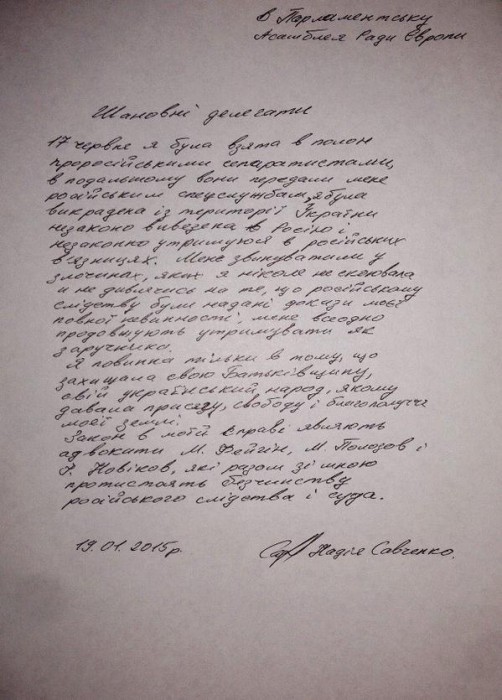 В Парламентську
Асамблея Ради Європи
Шановні делегати
17 червня я була взята в полон
проросійськими сепаратистами,
в подальшому вони передали мене
російським спецслужбам, я була
викрадена із території України
незаконо вивезена в Росію і
незаконно утримуюся в російських
в'язницях. Мене звинуватили у
злочинах, яких я ніколи не скоювала
и не дивлячись на те, що російському
слідству були надані докази моєї
повної невинності мене всеодно
продовжують утримувати як
заручника.
Я повинна тільки в тому, що
захищала свою Батьківщину,
свій український народ, якому
давала присягу, свободу і благополуччя
моєї землі.
Закон в моїй справі являють
адвокати М. Фейгін, М. Полозов і
І. Новіков, які разом зі мною
протистоять безчинству
російського слідства і суда.
19.01.2015р.
Надія Савченко.